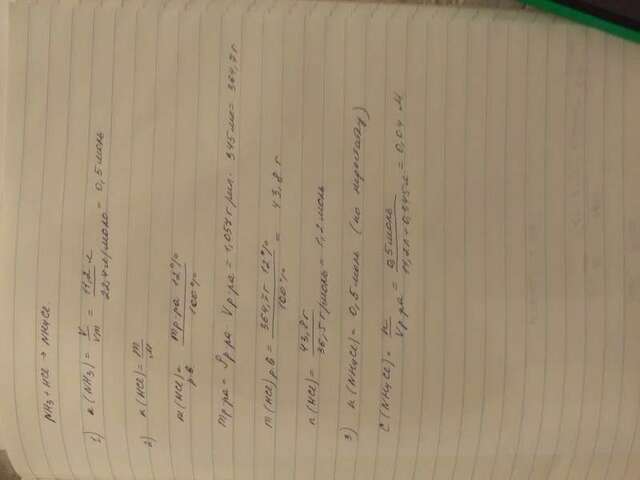 NH3 + HCl → NH4Cl
1) n(NH3) = V/Vm = 11,2 л / 22,4 л/моль = 0,5 моль
2) n(HCl) = m/M
m(HCl) р.в = mр-ра 12% / 100%
mр-ра = ρр-ра · Vр-ра = 1,054 г/мл · 345 мл = 364,7 г
m(HCl) р.в = 364,7 г 12% / 100% = 43,8 г
n(HCl) = 43,8 г / 36,5 г/моль = 1,2 моль
3) n(NH4Cl) = 0,5 моль (по недостатку)
C(NH4Cl) = n / Vр-ра = 0,5 моль / 11,2 л + 0,345 л = 0,04 М